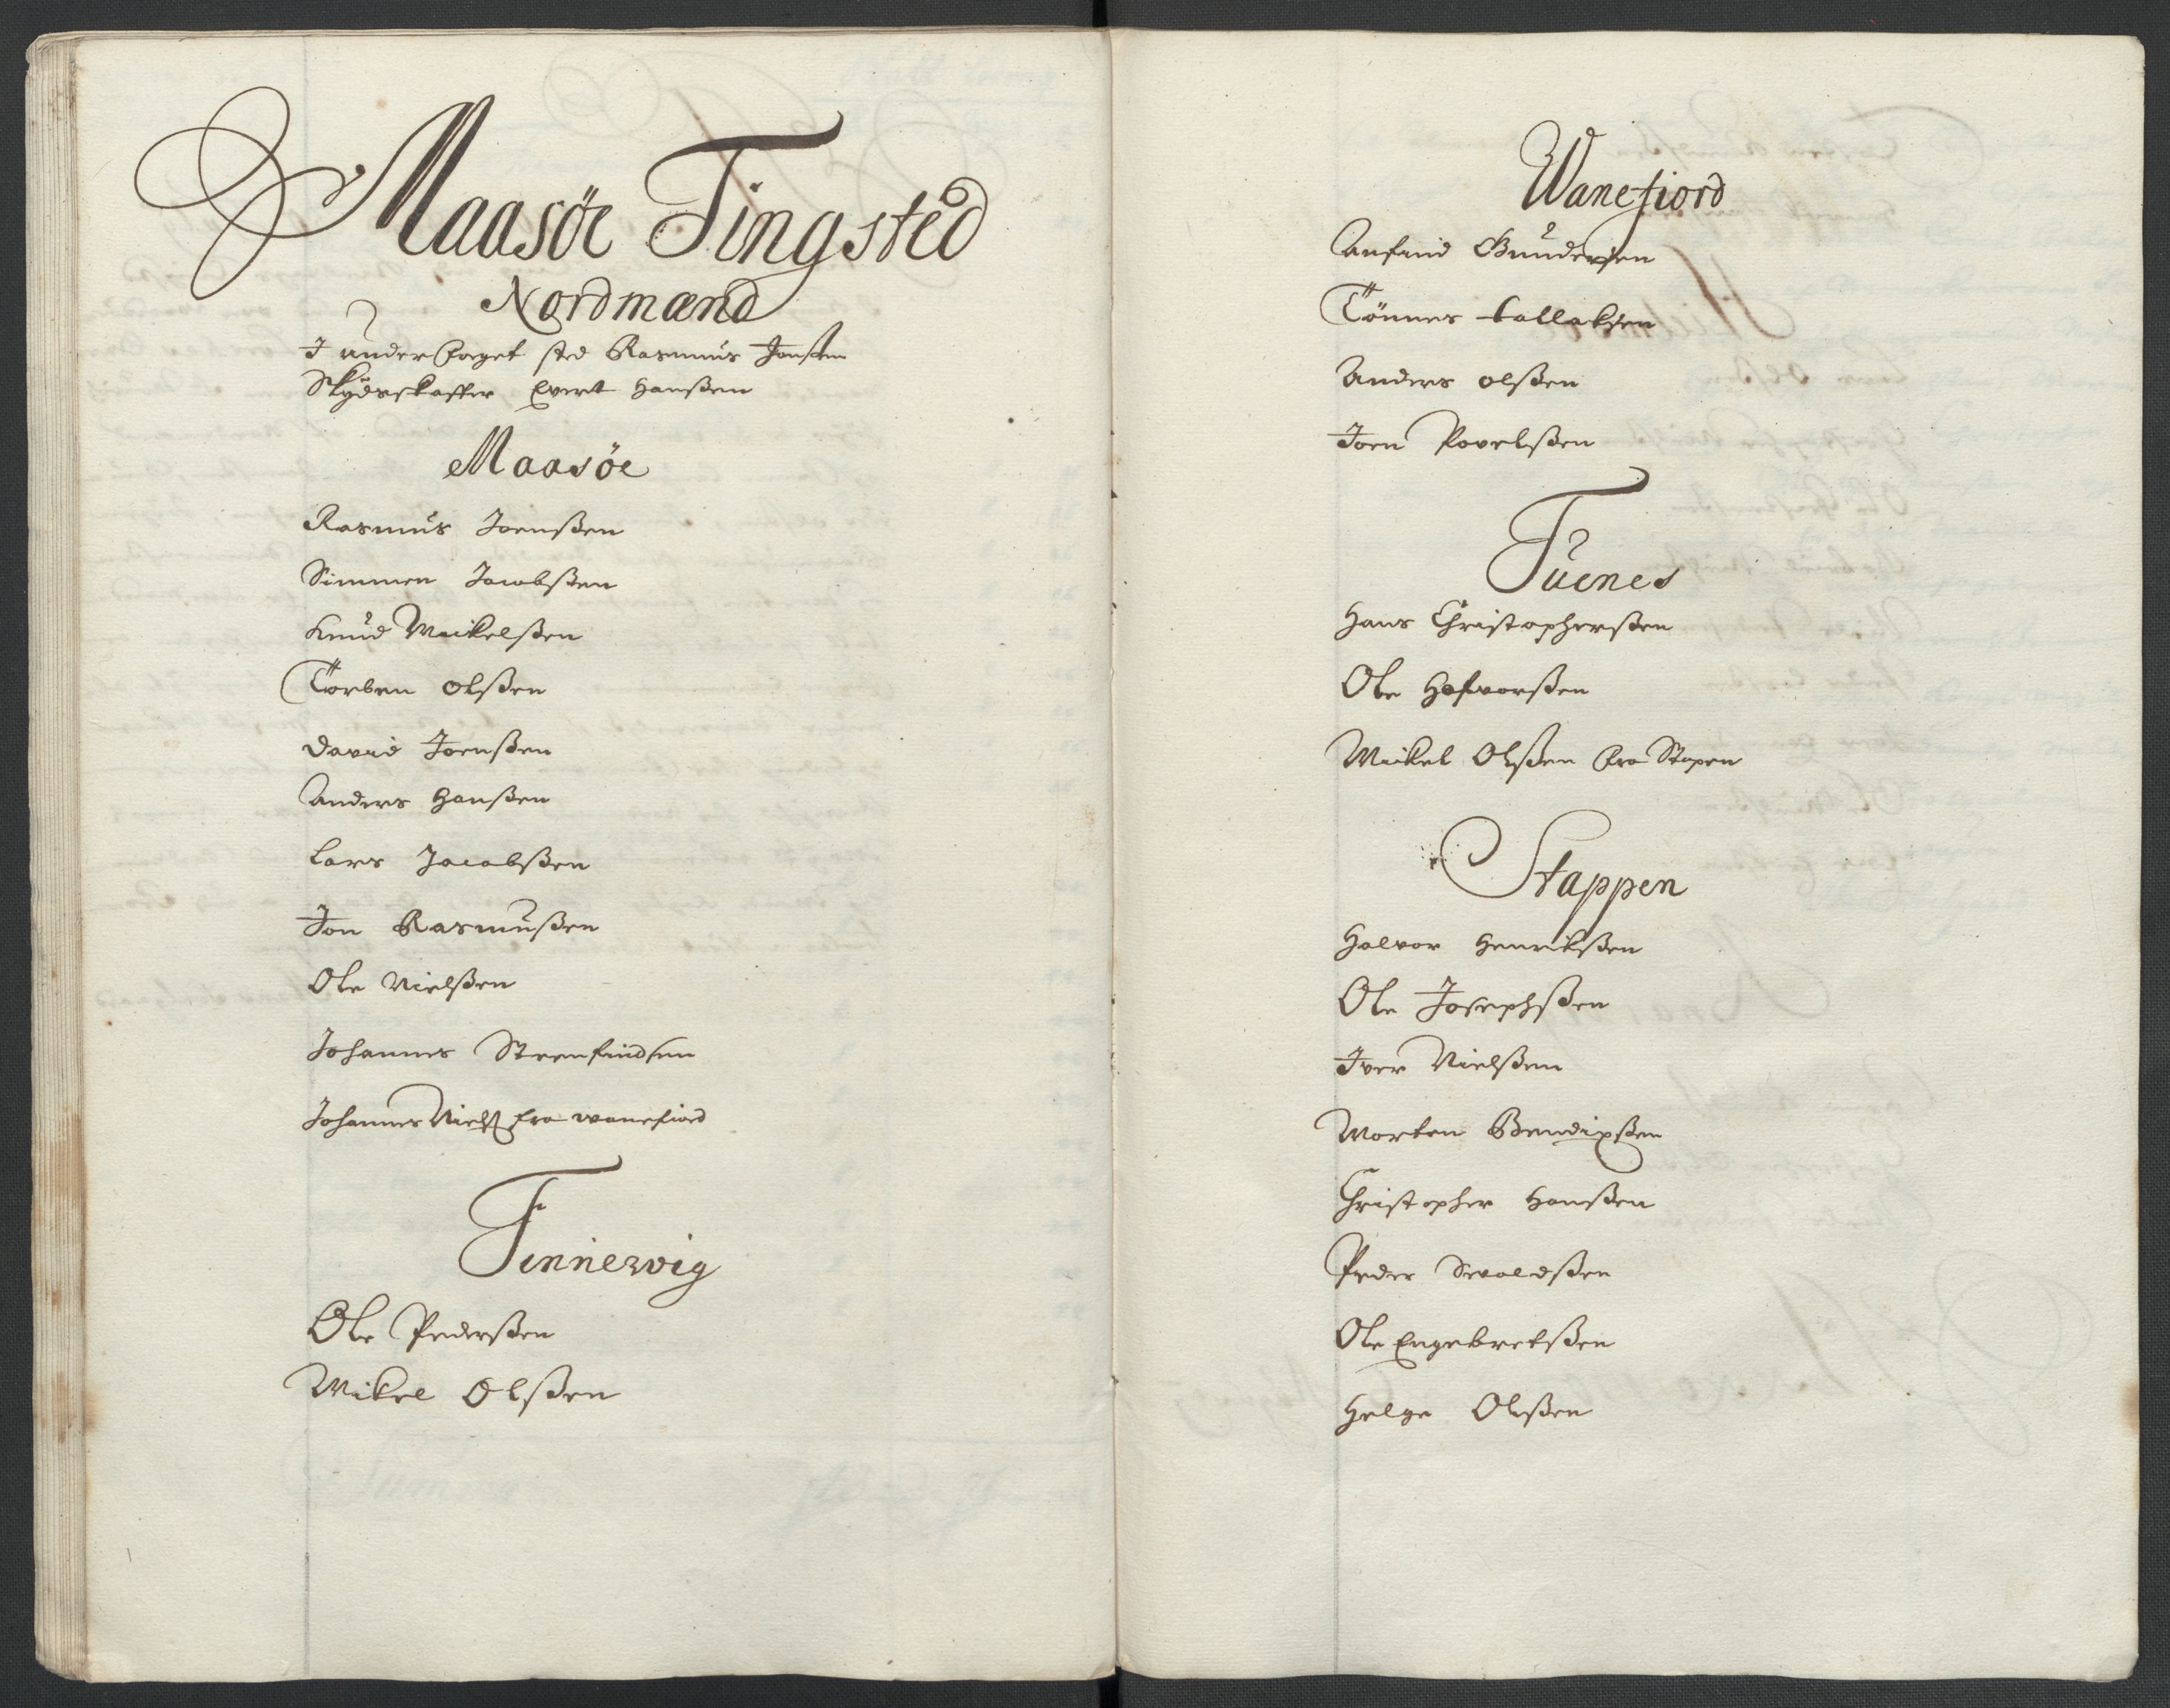 Maasöe Tingsted
Nordmænd
I underfoget sted Rasmus Jonßen
Skydsskaffer Evert Hanßen
Maasöe
Rasmus Joenßen
Simmen Jacobßen
Knud Mickelßen
Törben Olßen
David Joenßen
Anders Hanßen
Lars Jacobßen
Jon Rasmußen
Ole Nielßen
Johannes Steenfindsen
Johannes Nielß fra Wanefiord
Finnewig
Ole Pederßen
Mikel Olßen
Wanefiord
Anfind Gundersen
Tönnes tallaksen
Anders olßen
Joen Povelßen
Tuenes
Hans Christopherßen
Ole Hafvorßen
Mickel Olßen fra Stapen
Stappen
Halvor Henrikßen
Ole Josephßen
Iver Nielßen
Morten Bendixßen
Christopher Hanßen
Peder Sivoldßen
Ole Engebretßen
Helge Olßen